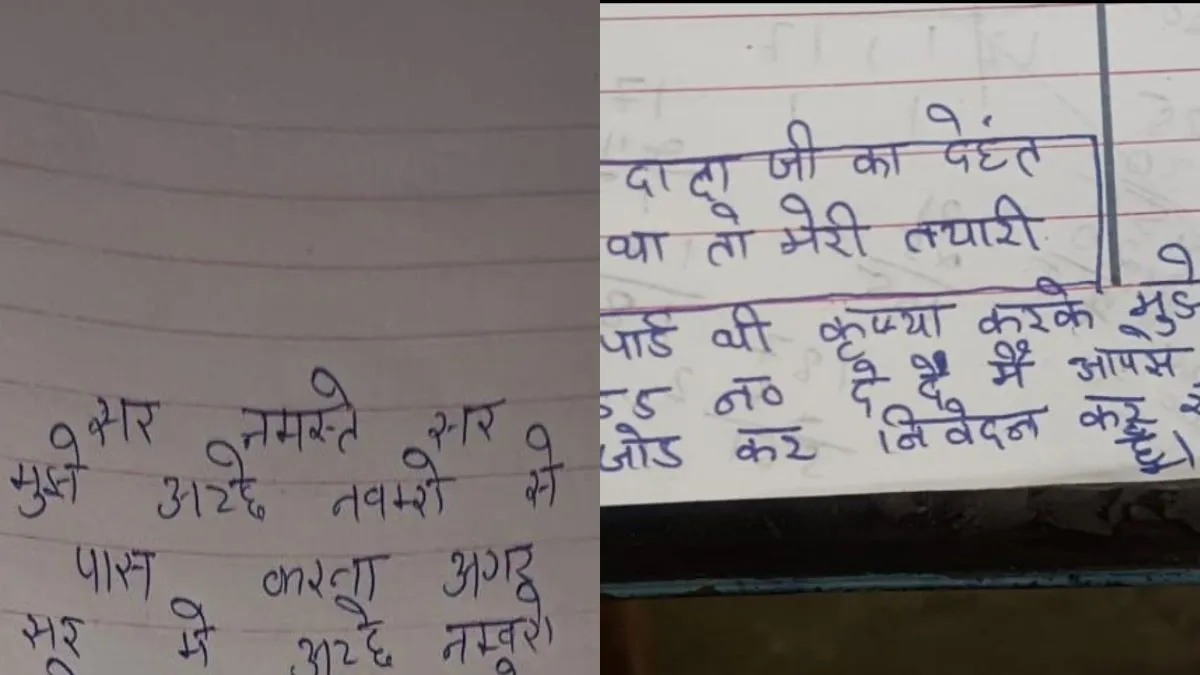 सर नमस्ते सर
मुझे अच्छे नवम्रो से
पास करना अगर
सर मे अच्छे नम्बरो
दादा जी का देहंत
तो मेरी तयारी
थी कृप्या करके मुझे
न० दे दे मैं आपसे
जोड कर निवेदन करू
है।